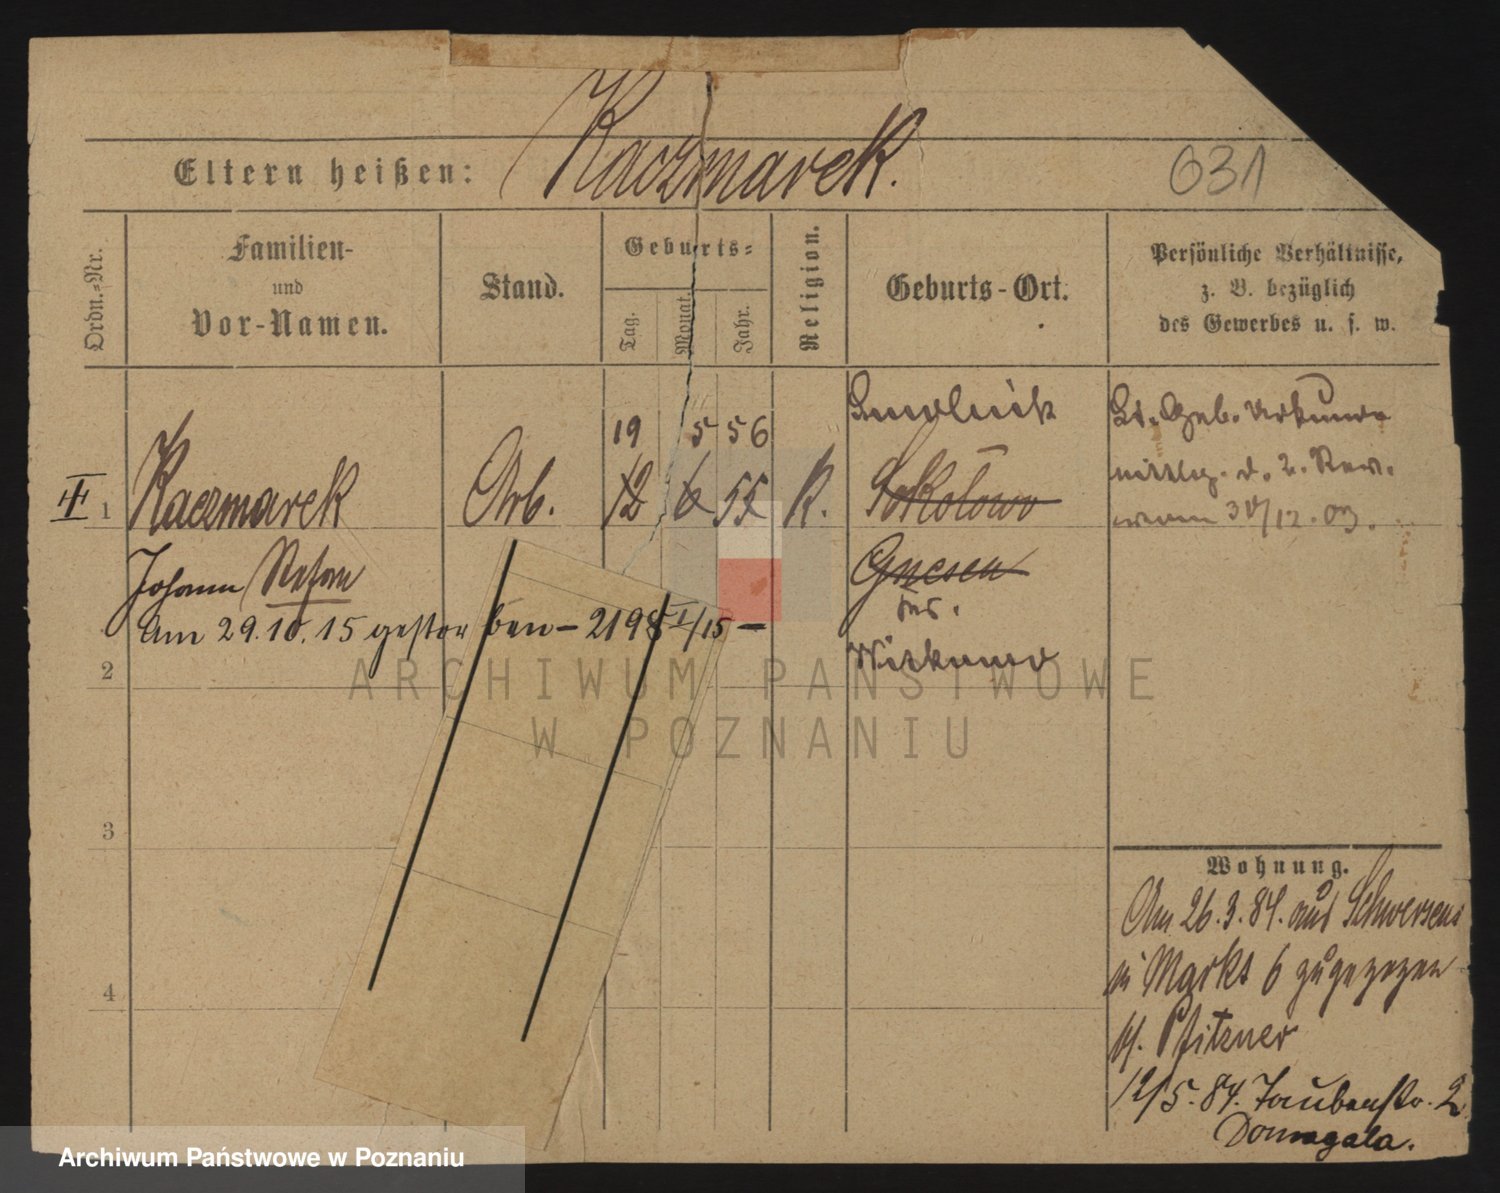 Kaczmarek.
Eltern heißen:
631
Ordn.-Nr.
Familien-
und
Vor-Namen.
Stand.
Geburts-
Tag.
Monat.
Jahr.
Religion.
Geburts-Ort.
Persönliche Verhältnisse,
z. B. bezüglich
des Gewerbes u. s. w.
19 5 56
Smolnik
Lt. Geb. Urkunde
III
1 Kaczmarek Arb. 12 6 55 K. Sokolowo
d. 2. Rev.
vom 30/12.03.
Johann Stefan
Gnesen
Kr.
Witkowo
Am 29.10.15 gestorben - 2198 I/15 -
2
ARCHIWUM PAŃSTWOWE
W POZNANIU
3
4
Wohnung.
Am 26.3.84. aus Schwersenz
Markt 6 zugezogen
b/. Pfitzner
12/5.84. Taubenstr. 2
Domagala.
Archiwum Państwowe w Poznaniu